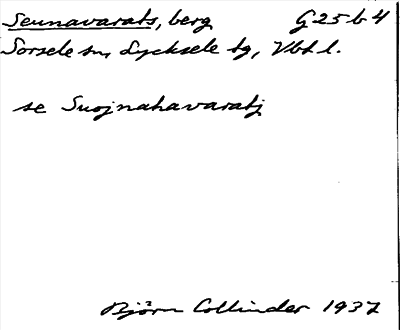 Seunavarats, berg G 25 b 4
Sorsele sn, Lycksele tg, Vbt l.
se Suojnahavaratj
Björn Collinder 1937